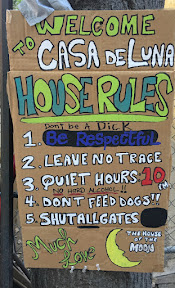 WELCOME
TO CASA DE LUNA
HOUSE RULES
DONT BE A DICK
1. BE RESPECTFUL
2. LEAVE NO TRACE
3. QUIET HOURS 10
NO HARD ALCOHOL!!
4. DONT FEED DOGS!!
5. SHUT ALL GATES
Much
Love
THE HOUSE
OF THE
MOON